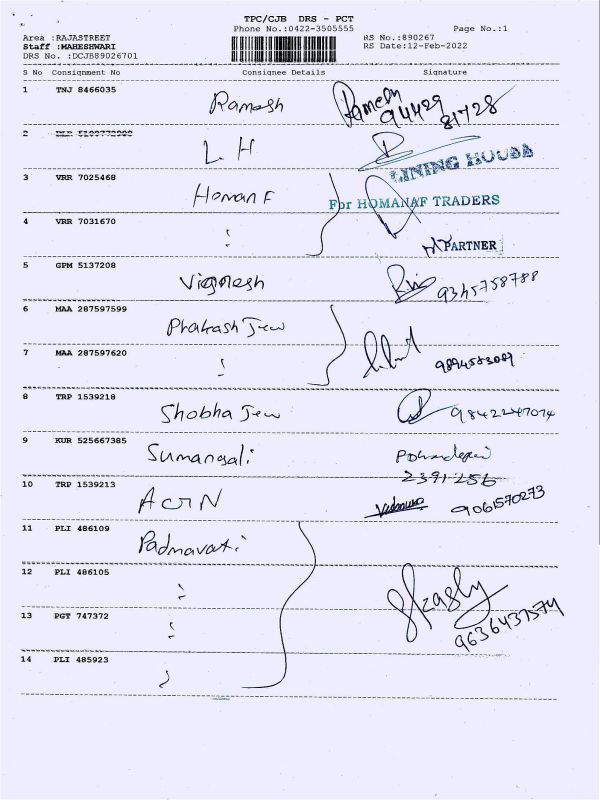 TPC/CJB DRS - PCT
Phone No.:0422-3505555 Page No.:1
Area :RAJASTREET RS No.:890267
Staff :MAHESHWARI RS Date:12-Feb-2022
DRS No. :DCJB89026701
S No Consignment No Consignee Details Signature
1 TNJ 8466035 Ramesh Ramesh
94429
81728
2 L H
LINING HOUSE
3 VRR 7025468 Homan F
For HOMANAF TRADERS
4 VRR 7031670 "
PARTNER
5 GPM 5137208 Vignesh 9345758788
6 MAA 287597599 Prakash Jew
7 MAA 287597620 " 9894583089
8 TRP 1539218 Shobha Jew 9842247074
9 KUR 525667385 Sumangali
2391256
10 TRP 1539213 9061570273
11 PLI 486109 Padmavati
12 PLI 486105 "
13 PGT 747372 "
9636437574
14 PLI 485923 "